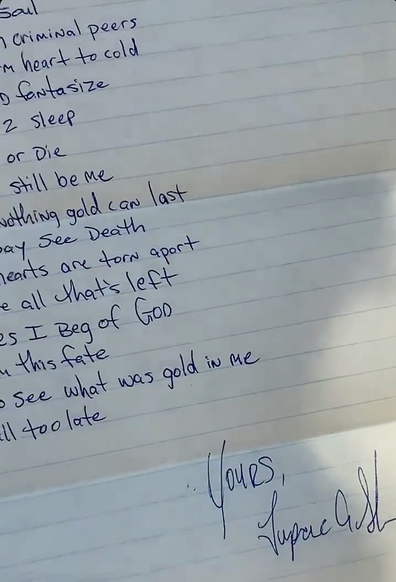 Soul
criminal peers
heart to cold
fantasize
2 sleep
or Die
still be me
nothing gold can last
See Death
hearts are torn apart
all that's left
I Beg of GOD
this fate
see what was gold in me
too late
Yours,
Tupac A Sh